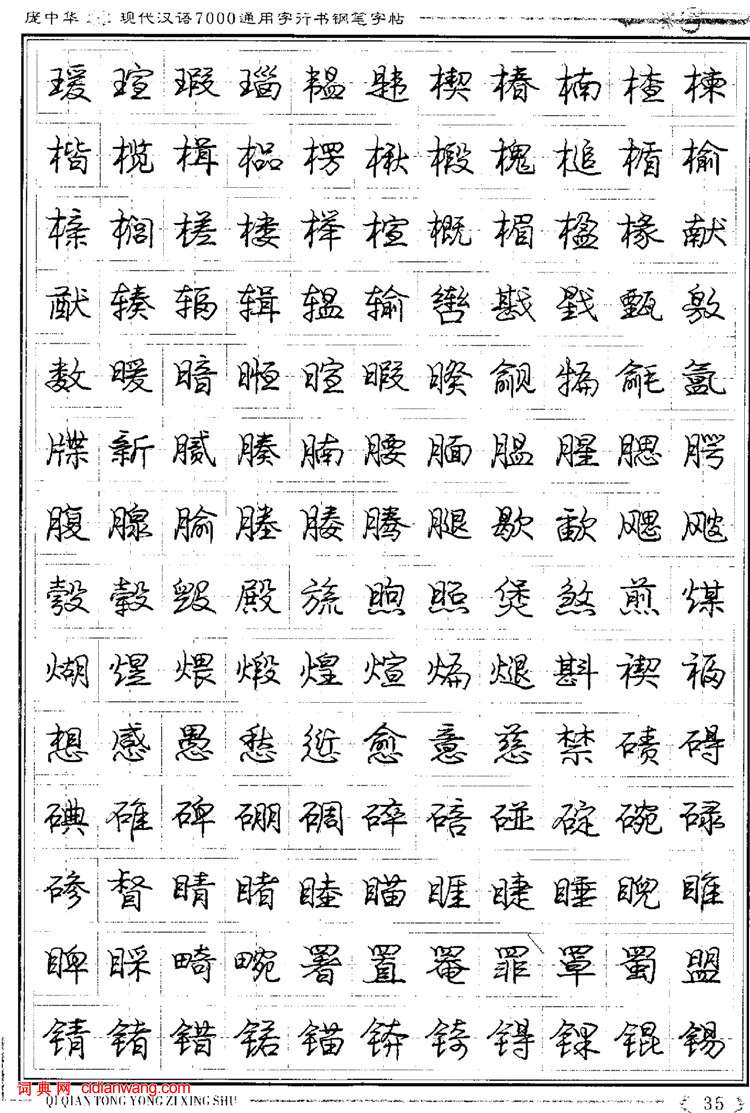 庞中华 现代汉语7000通用字行书钢笔字帖
瑗 瑄 瑕 瑙 韫 韪 楔 椿 楠 楂 楝
楷 榄 楫 榀 楞 楸 椴 槐 槌 楯 榆
榇 榈 槎 楼 榉 楦 概 楣 楹 椽 献
猷 辏 辐 辑 辒 输 辔 戡 戥 甄 敫
数 暖 暗 暅 暄 暇 暌 觎 犏 毹 氲
牒 新 腻 腠 腩 腰 腼 腽 腥 腮 腭
腹 腺 腧 塍 媵 腾 腿 歇 歃 飔 飕
彀 毂 毁 殿 旒 煦 照 煲 煞 煎 煤
煳 煜 煨 煅 煌 煊 煸 煺 斟 禊 福
想 感 愚 愁 愆 愈 意 慈 禁 碛 碍
碘 碓 碑 硼 碉 碎 碚 碰 碇 碗 碌
碜 督 睛 睹 睦 瞄 睚 睫 睡 睨 睢
睥 睬 畸 畹 署 置 罨 罪 罩 蜀 盟
锖 锗 错 锘 锚 锛 锜 锝 锞 锟 锡
词典网 cidianwang.com
QI QIAN TONG YONG ZI XING SHU
35